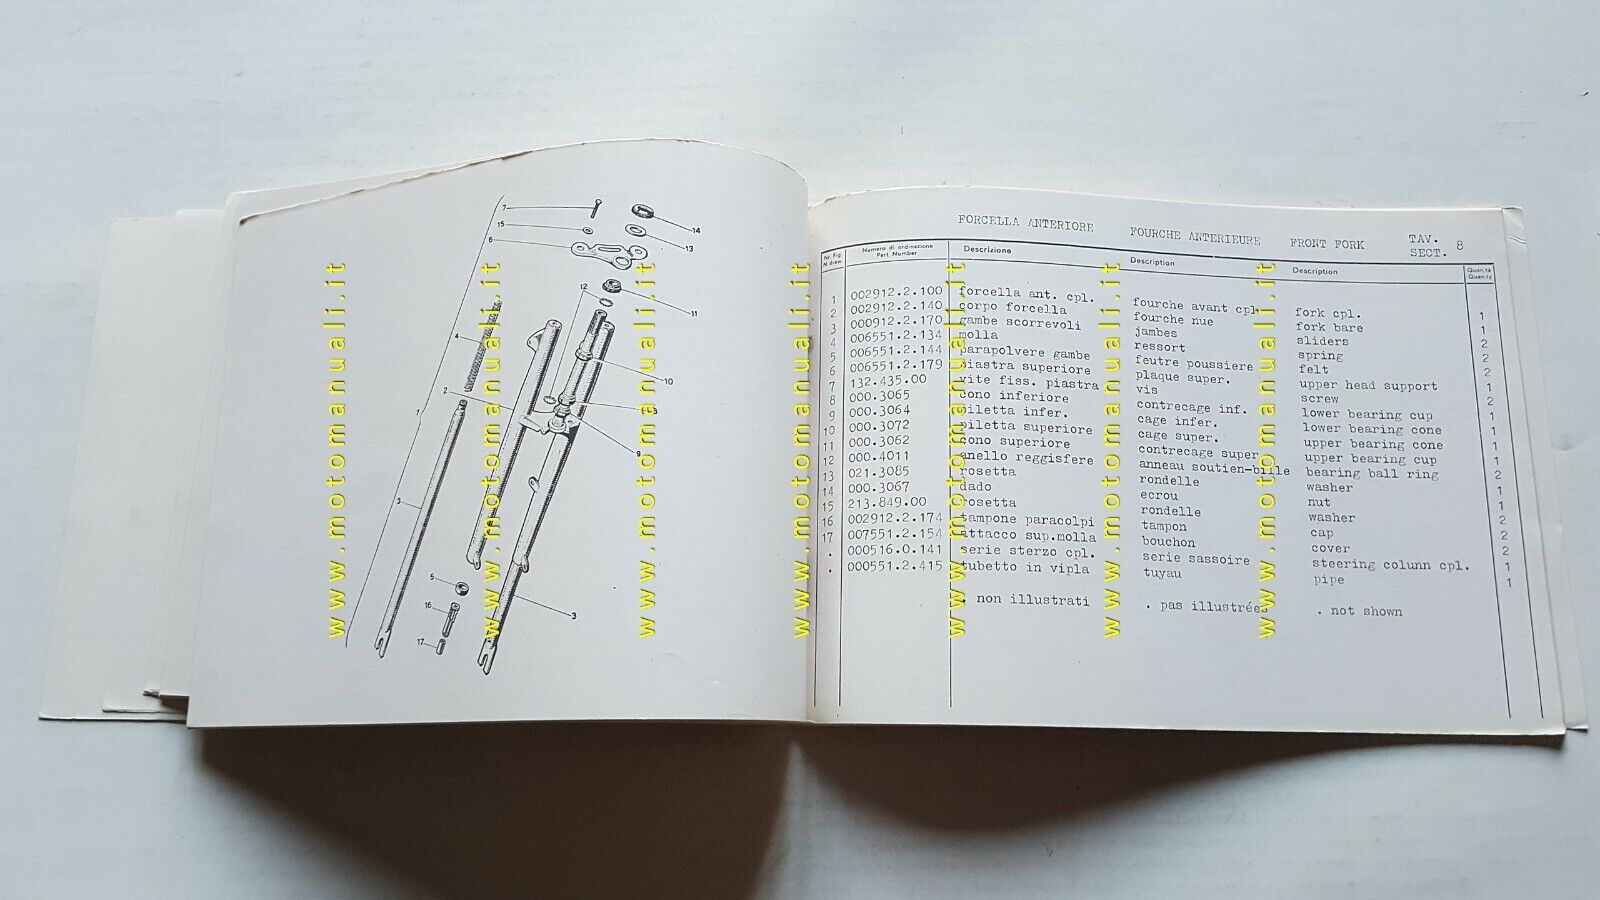 7
15
6
14
13
12
11
4
10
2
1
8
9
3
5
16
17
3
www.motomanuali.it
www.motomanuali.it
www.motomanuali.it
www.motomanuali.it
www.motomanuali.it
www.motomanuali.it
www.motomanuali.it
FORCELLA ANTERIORE FOURCHE ANTERIEURE FRONT FORK TAV. SECT. 8
Nr. Fig. N draw Numero di ordinazione Part Number Descrizione Description Description Quan.tà Quan.ty
1 002912.2.100 forcella ant. cpl. fourche avant cpl. fork cpl. 1
2 002912.2.140 corpo forcella fourche nue fork bare 1
3 000912.2.170 gambe scorrevoli jambes sliders 2
4 006551.2.134 molla ressort spring 2
5 006551.2.144 parapolvere gambe feutre poussiere felt 2
6 006551.2.179 piastra superiore plaque super. upper head support 1
7 132.435.00 vite fiss. piastra vis screw 2
8 000.3065 cono inferiore contrecage inf. lower bearing cup 1
9 000.3064 piletta infer. cage infer. lower bearing cone 1
10 000.3072 piletta superiore cage super. upper bearing cone 1
11 000.3062 cono superiore contrecage super upper bearing cup 1
12 000.4011 anello reggisfere anneau soutien-bille bearing ball ring 2
13 021.3085 rosetta rondelle washer 1
14 000.3067 dado ecrou nut 1
15 213.849.00 rosetta rondelle washer 2
16 002912.2.174 tampone paracolpi tampon cap 2
17 007551.2.154 attacco sup.molla bouchon cover 2
. 000516.0.141 serie sterzo cpl. serie sassoire steering colunn cpl. 1
. 000551.2.415 tubetto in vipla tuyau pipe 1
. non illustrati . pas illustrées . not shown